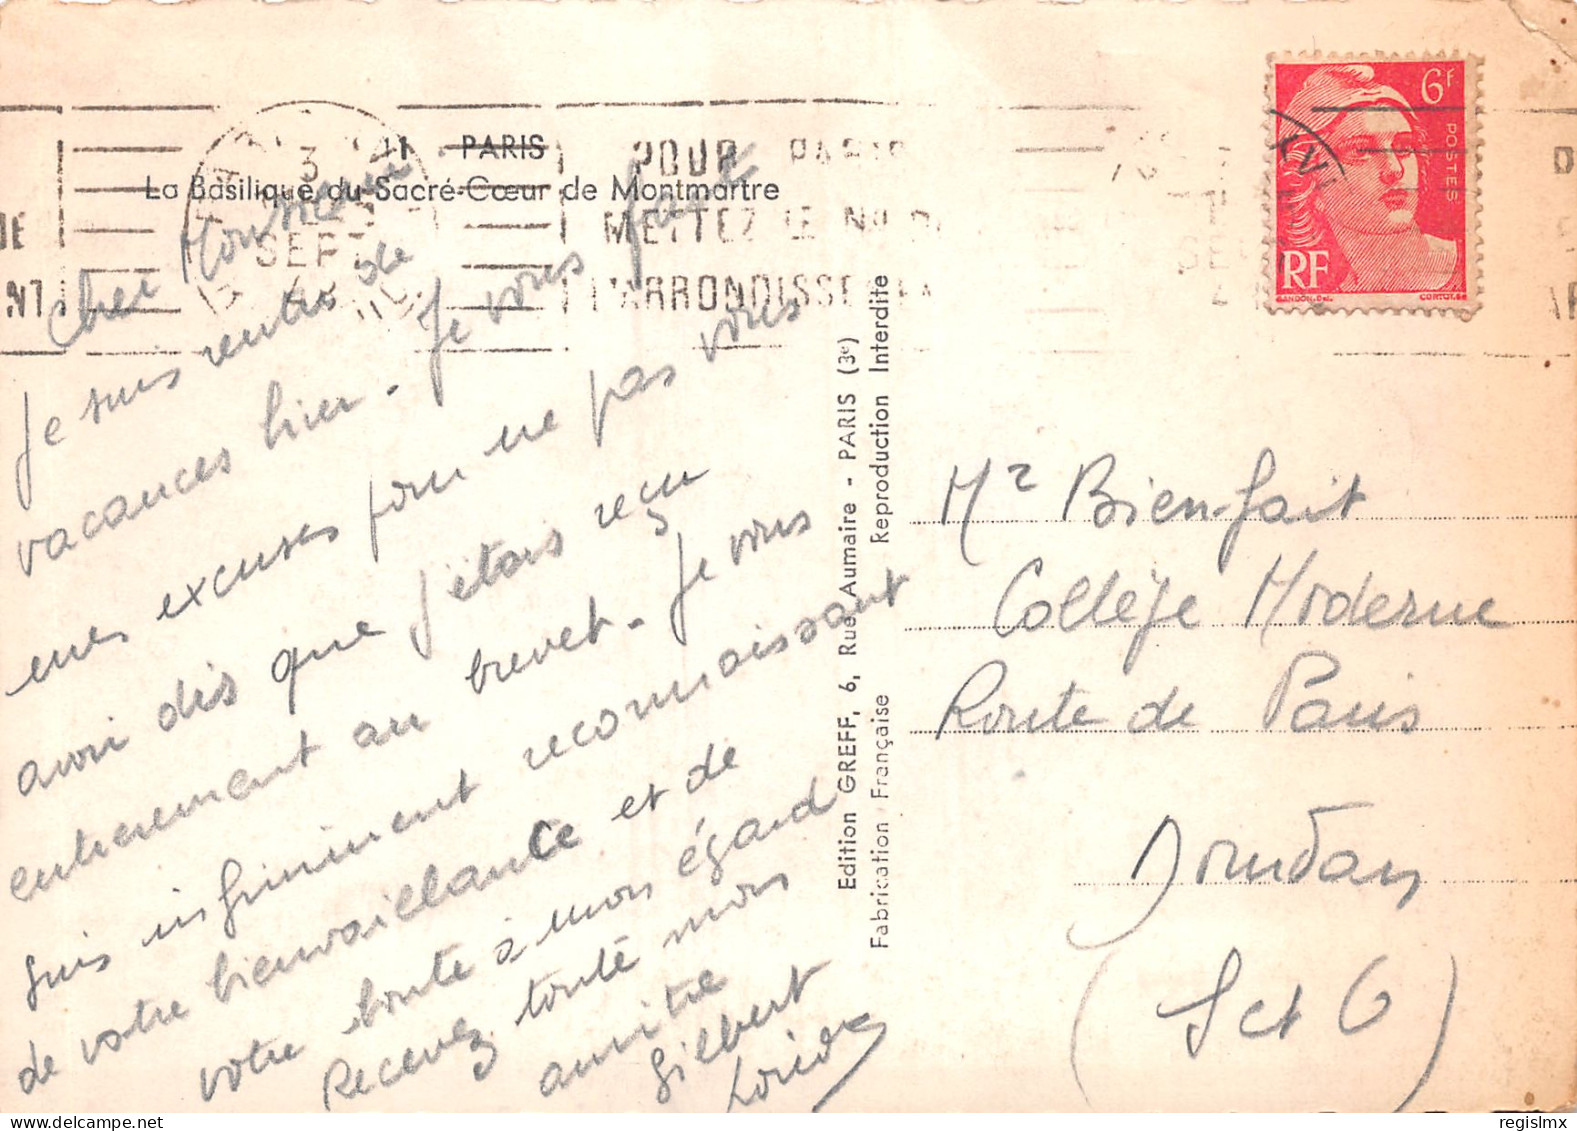 11 PARIS
La Basilique du Sacré-Cœur de Montmartre
POUR PARIS
METTEZ LE No D
L'ARRONDISSEMEN
3
SEPT
48
6F
POSTES
RF
GANDON.DEL.
CORTOT.SC
Cher Monsieur
Je suis rentré de
vacances hier. Je vous fait
mes excuses pour ne pas vous
avoir dis que j'étais reçu
entierement au brevet. Je vous
suis infiniment reconnaissant
de votre bienvaillance et de
votre bonté à mon égard
Recevez toute mon
amitié
Gilbert
Edition GREFF, 6, Rue Aumaire - PARIS (3e)
Fabrication Française Reproduction Interdite
Mr Bien-fait
Collège Moderne
Route de Paris
Dourdan
(S et O)
regislmx